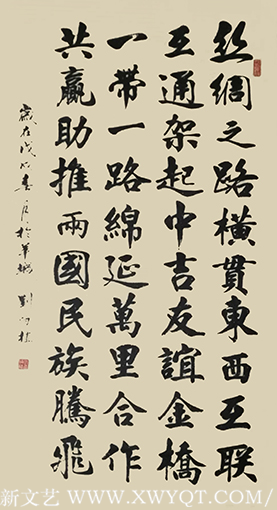 丝綢之路橫貫東西互联
互通架起中吉友誼金橋
一帶一路綿延萬里合作
共贏助推兩國民族騰飛
歲在戊戌
新文艺 WWW.XWYQT.COM/